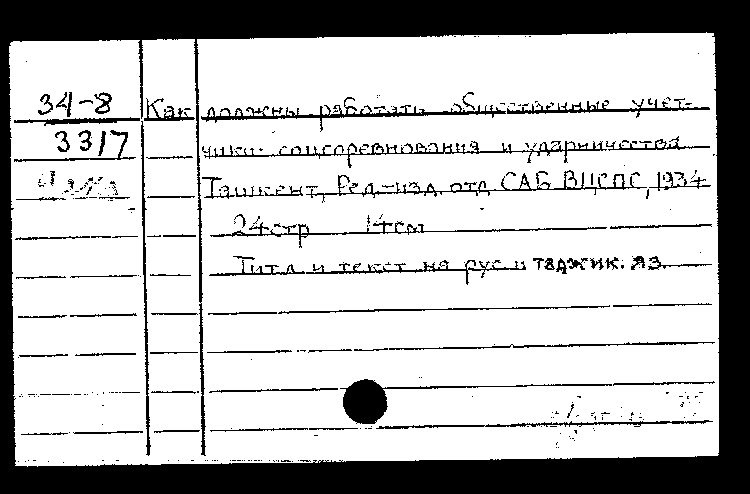 34-8
3317
Как должны работать общественные учет-
чики соцсоревнования и ударничества
Ташкент, Ред.-изд. отд. САБ ВЦСПС, 1934
24стр 14см
Титл и текст на рус и таджик. яз.